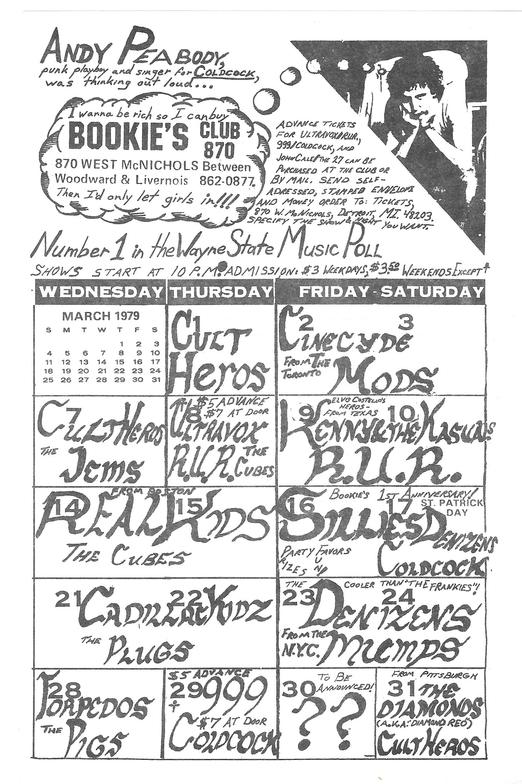 ANDY PEABODY,
punk playboy and singer for COLDCOCK,
was thinking out loud...
I wanna be rich so I can buy
BOOKIE'S CLUB 870
870 WEST McNICHOLS Between
Woodward & Livernois 862-0877.
Then I'd only let girls in!!!
ADVANCE TICKETS
FOR ULTRAVOX/RUR,
999/COLDCOCK, AND
JOHN CALE/THE 27 CAN BE
PURCHASED AT THE CLUB OR
BY MAIL. SEND SELF-
ADRESSED, STAMPED ENVELOPE
AND MONEY ORDER TO: TICKETS,
870 W. McNICHOLS, DETROIT, MI. 48203.
SPECIFY THE SHOW & NIGHT YOU WANT.
Number 1 in the Wayne State Music Poll
SHOWS START AT 10 P.M. ADMISSION: $3 WEEKDAYS, $3.50 WEEKENDS EXCEPT †
WEDNESDAY THURSDAY FRIDAY - SATURDAY
MARCH 1979
S M T W T F S
1 2 3
4 5 6 7 8 9 10
11 12 13 14 15 16 17
18 19 20 21 22 23 24
25 26 27 28 29 30 31
CULT
HEROS
2 3
CINECYDE
FROM TORONTO THE
MODS
7
CULT HEROS
THE
JEMS
$5 ADVANCE
8 $7 AT DOOR
ULTRAVOX
R.U.R. THE CUBES
ELVO COSTELLO'S
HEROS-
FROM TEXAS
9 10
KENNY & THE KASUALS
R.U.R.
FROM BOSTON
14 15
REAL KIDS
THE CUBES
BOOKIE'S 1ST ANNIVERSARY!
16 17 ST. PATRICK
DAY
SILLIES DENIZENS
PARTY FAVORS
COLDCOCK
21 22
CADILLAC KIDZ
THE
PLUGS
THE COOLER THAN "THE FRANKIES"!
23 24
DENIZENS
FROM THE
N.Y.C. MUMPS
28
TORPEDOS
THE
PIGS
$5 ADVANCE
29 999
†
$7 AT DOOR
COLDCOCK
30 TO BE
ANNOUNCED!
? ?
FROM PITTSBURGH
31 THE
DIAMONDS
(A.K.A. DIAMOND REO)
CULT HEROS